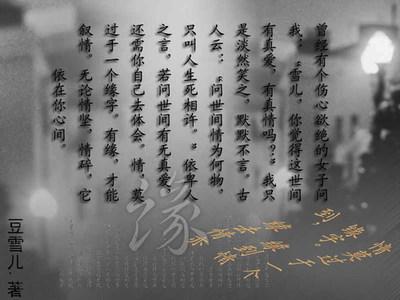 曾经有个伤心欲绝的女子问
我:“雪儿,你觉得这世间
有真爱,有真情吗?”我只
是淡然笑之,默默不言。古
人云:“问世间情为何物,
只叫人生死相许。”依卑人
之言,若问世间有无真爱,
还需你自己去体会。情,莫
过于一个缘字,有缘,才能
叙情。无论情坚,情碎,它
依在你心间。
情莫过于
缘字。
到,
缘
豆雪儿.著